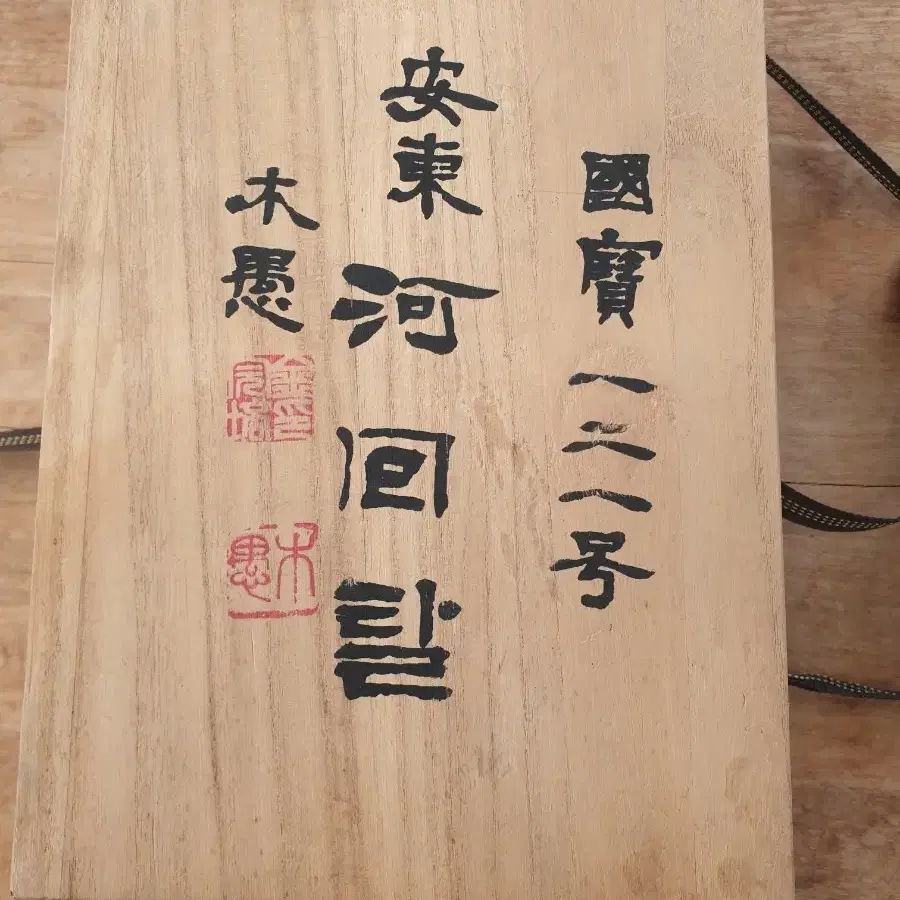 國寶一二一号
安東河回탈
木愚
木愚